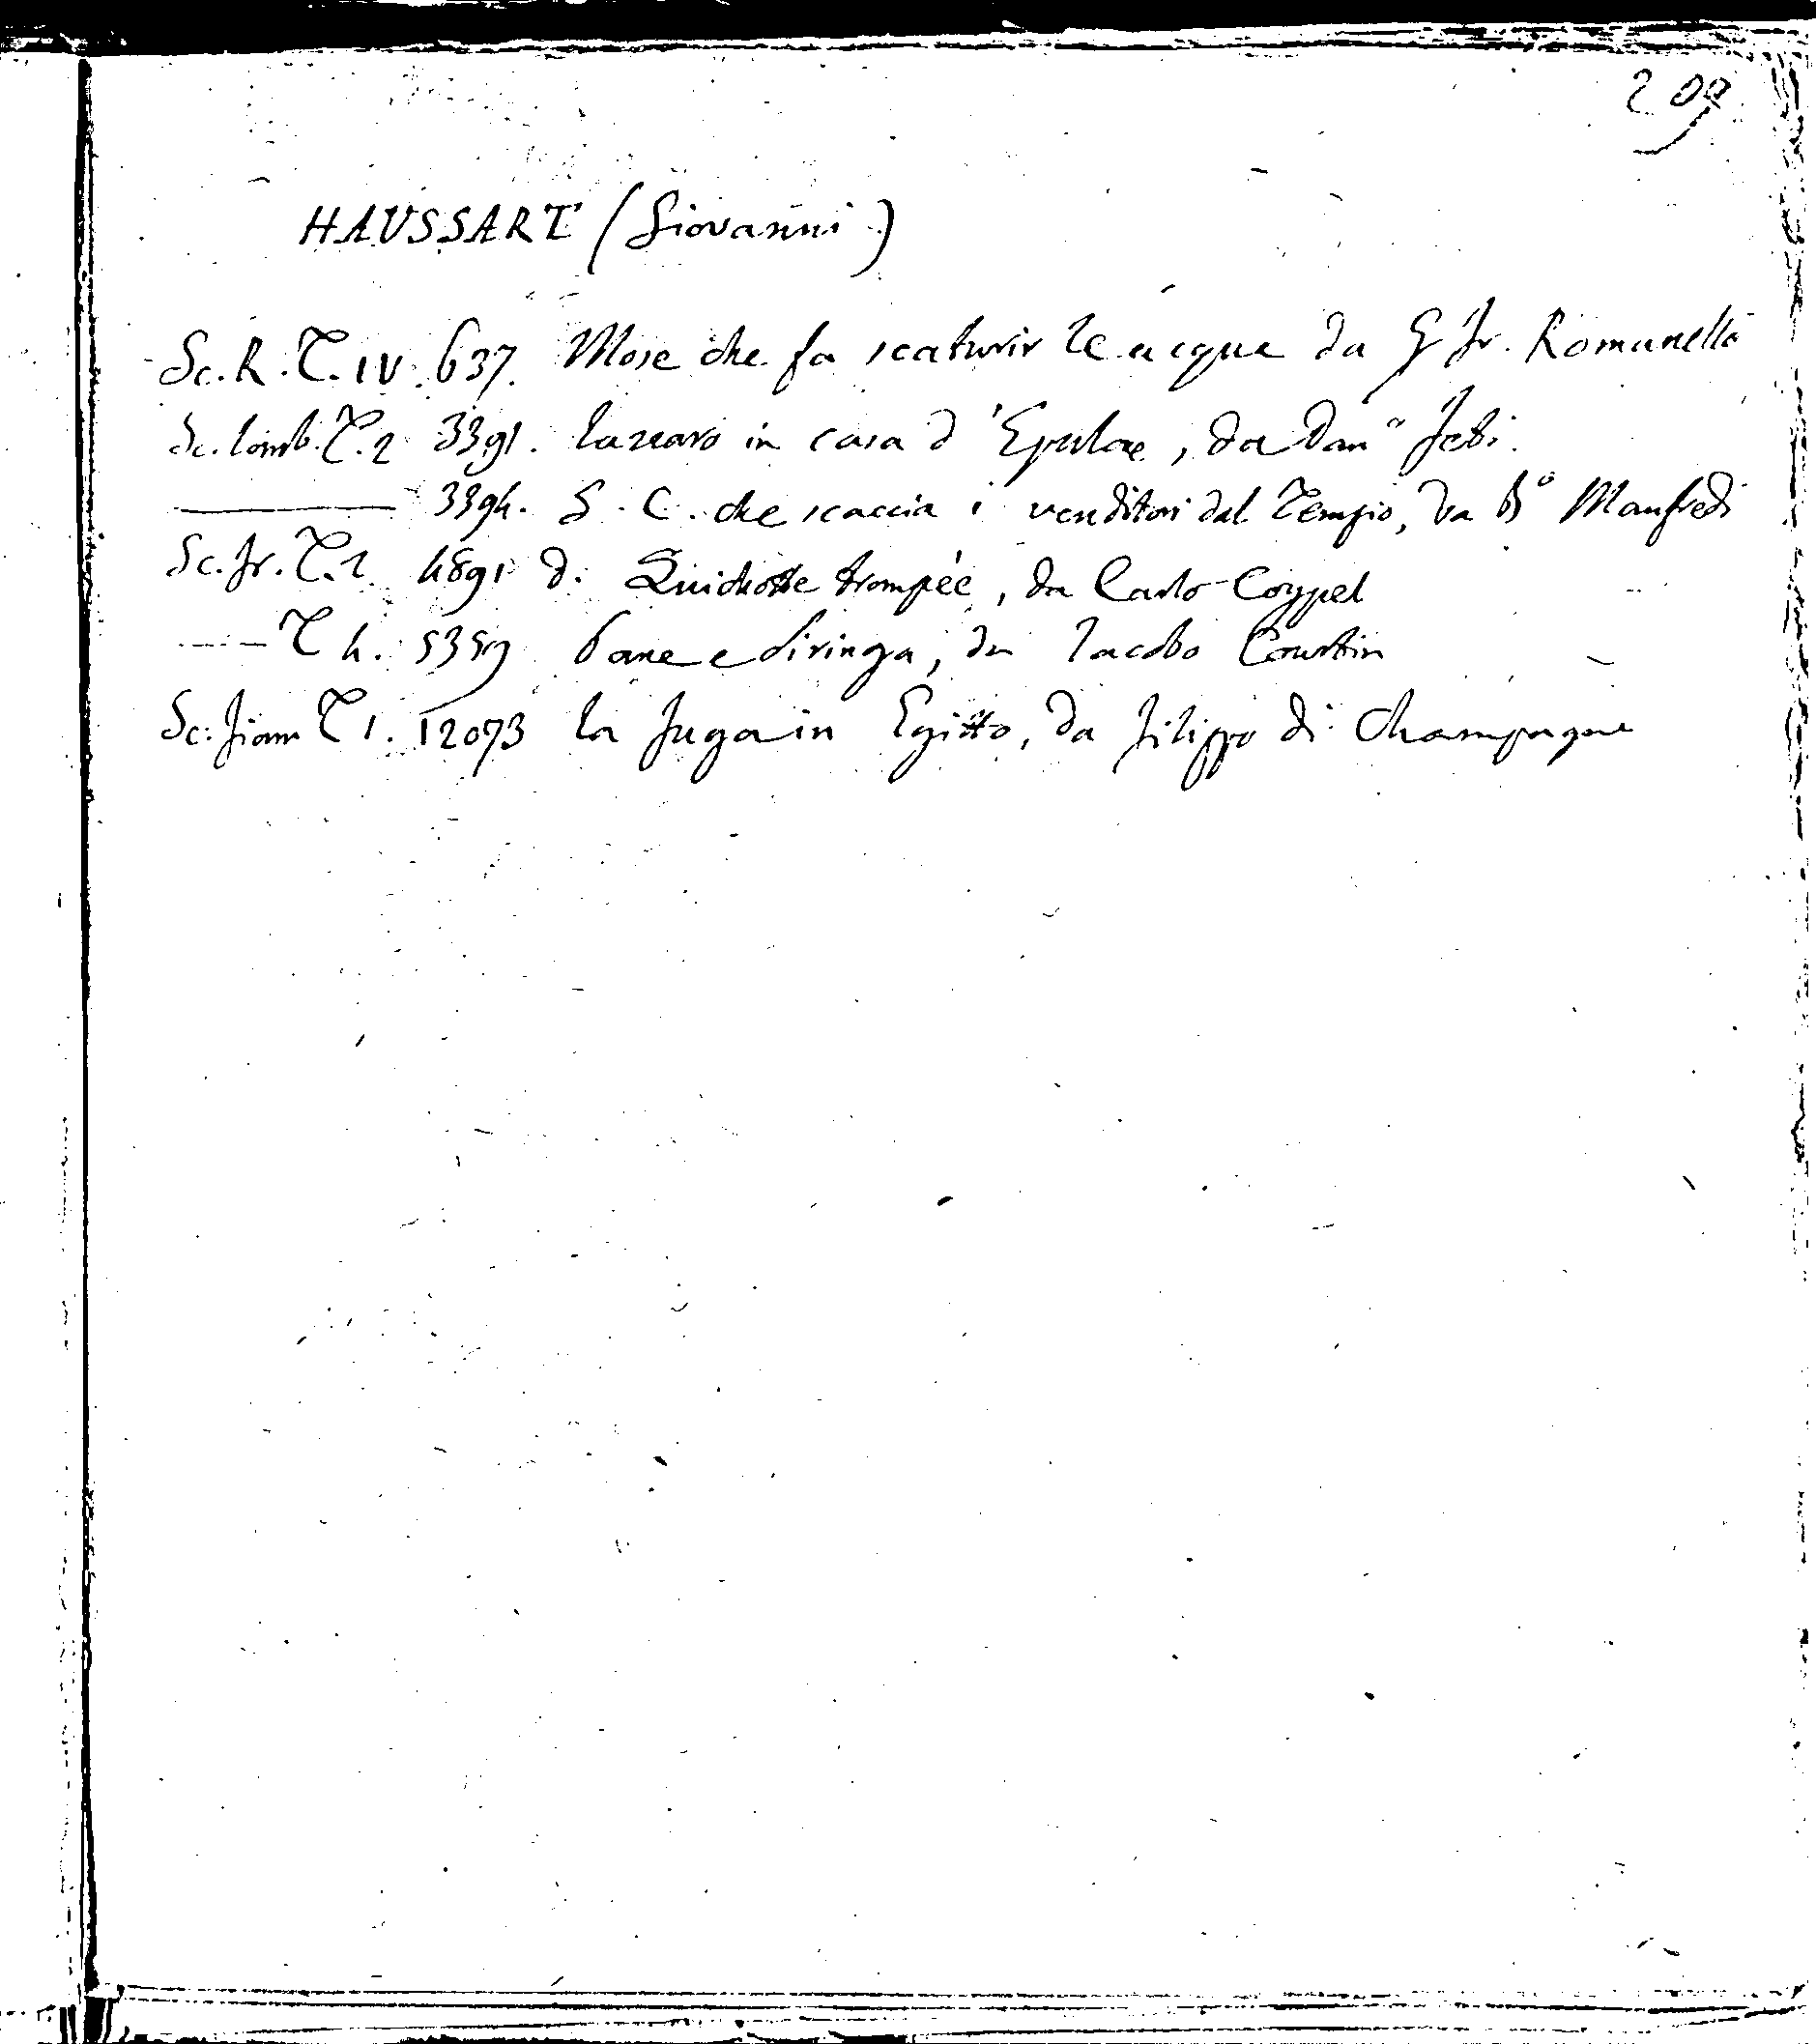 209
HAUSSART (Giovanni)
Sc. R. T. IV. 637. Mose che fa scaturir le acque da G Fr. Romanelli
Sc. lomb. T. 2 3391. lazzaro in casa d'Epulae, da Dom° Feti.
——— 3394. G. C. che scaccia i venditori dal Tempio, da B° Manfredi
Sc. fr. T. 2. 4891 D. Quichotte trompée, da Carlo Coypel
—— T 4. 5359 Pane e Siringa, da Iacobo Courtin
Sc. fiam T 1. 12073 la fuga in Egitto, da Filippo di Champagne